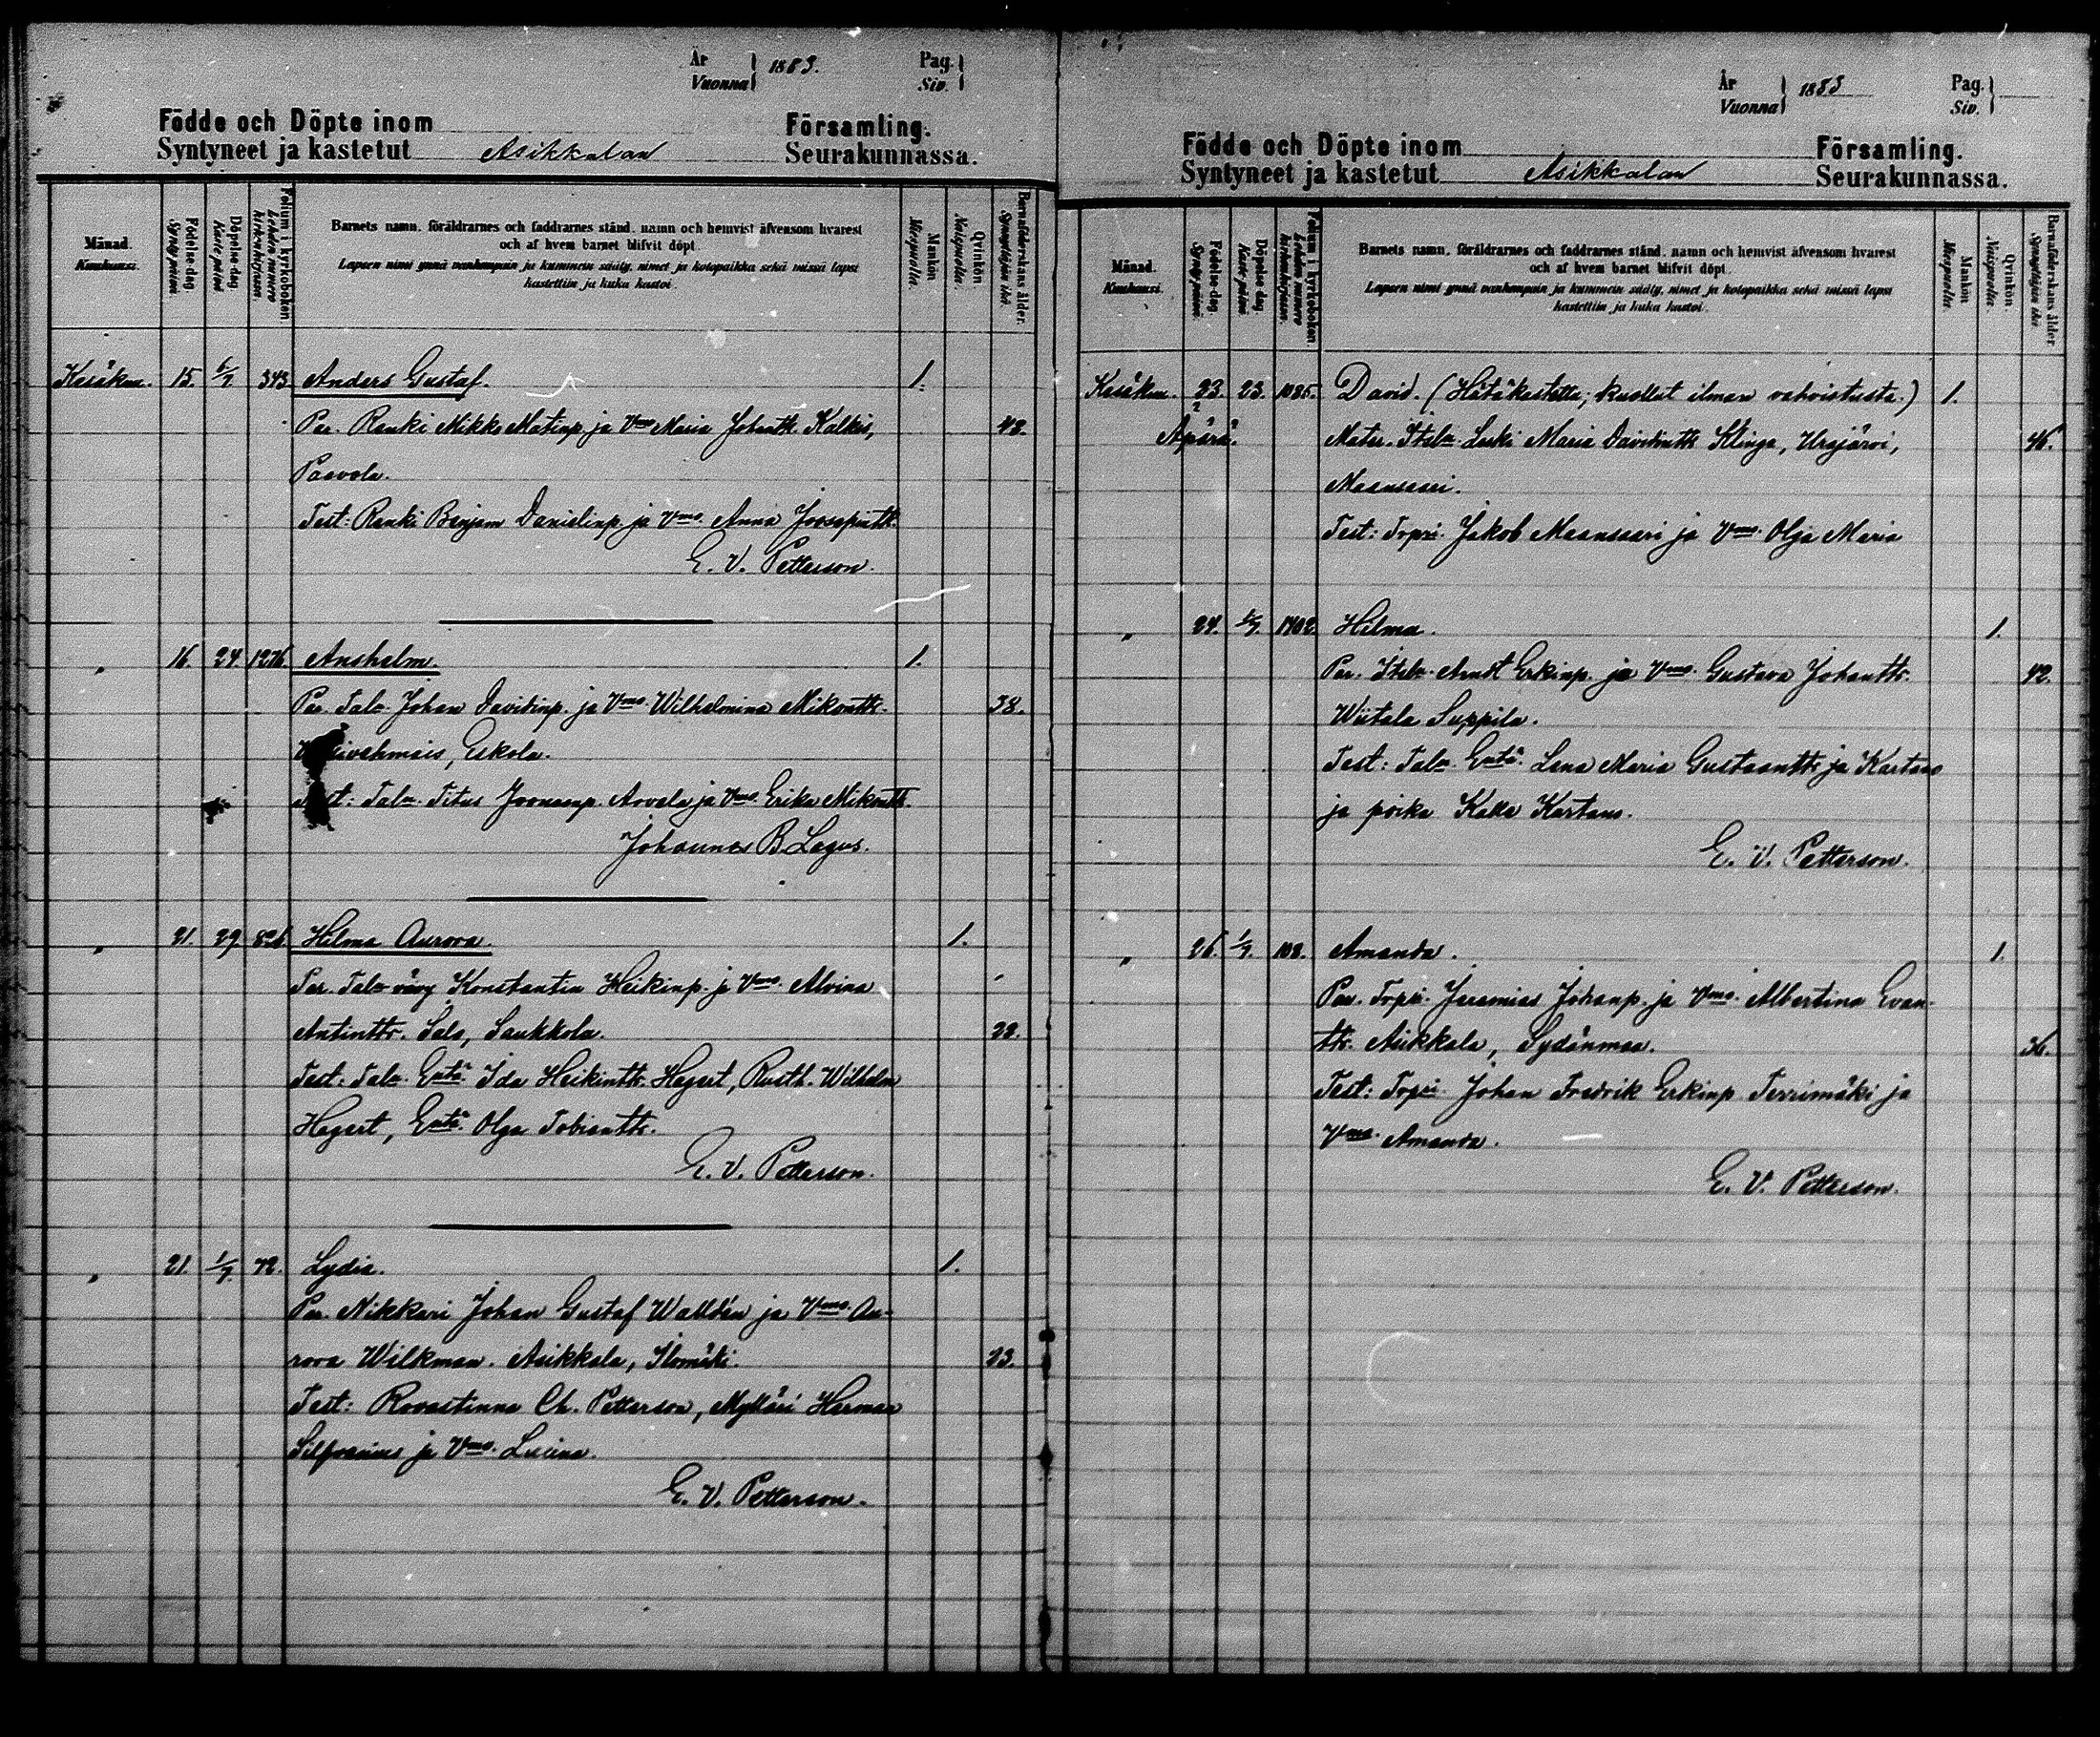 År
Vuonna } 1883.
Pag.
Siv. }
Födde och Döpte inom Församling.
Syntyneet ja kastetut Asikkalan Seurakunnassa.
Månad. Kuukausi.
Födelse-dag. Syntymäpäivä.
Döpelse-dag Kaste-päivä
Folium i kyrkoboken. Lehden numero kirkonkirjassa
Barnets namn, föräldrarnes och faddrarnes stånd, namn och hemvist äfvensom hvarest
och af hvem barnet blifvit döpt.
Lapsen nimi ynnä vanhempain ja kummein sääty, nimet ja kotopaikka sekä missä lapsi
kastettiin ja kuka kastoi.
Mankön Miespuolia.
Qvinkön Naispuolia.
Barnaföderskans ålder. Synnyttäjän ikä
Kesäkuu. 15. 6/7. 343 Anders Gustaf. 1.
Par. Renki Mikko Matinp. ja Vmo Maria Johantt. Kalkis, 42.
Paavola.
Test: Renki Benjam Danielinp. ja Vmo. Anna Joosepintt.
E. V. Petterson.
" 16. 24. 1276 Anshelm. 1.
Par. Tal. Johan Davidinp. ja Vmo Wilhelmina Mikontt. 38.
Eskola.
Tal. Titus Joonanp. Arvela ja Vmo. Erika Mikontt.
Johannes B. Lagus.
" 21. 29. 826 Hilma Aurora. 1.
Par. Tal. vävy Konstantin Heikinp. ja Vmo. Alvina
Antintts. Salo, Saukkola. 22.
Test: Tal. Entä. Ida Heikintts. Hegert, Rusth. Wilhelm
Hegert, Entä. Olga Tobiantts.
E. V. Petterson.
" 21. 1/7. 72. Lydia. 1.
Par. Nikkari Johan Gustaf Walldén ja Vmo. Au-
rora Wilkman. Asikkala, Ilomäki. 23.
Test: Rovastinna Ch. Petterson, Mylläri Herman
Silfvenius ja Vmo. Lucina.
E. V. Petterson.
År
Vuonna } 1883
Pag.
Siv. }
Födde och Döpte inom Församling.
Syntyneet ja kastetut Asikkalan Seurakunnassa.
Månad. Kuukausi.
Födelse-dag. Syntymäpäivä.
Döpelse-dag. Kaste-päivä
Folium i kyrkoboken. Lehden numero kirkonkirjassa.
Barnets namn, föräldrarnes och faddrarnes stånd, namn och hemvist äfvensom hvarest
och af hvem barnet blifvit döpt.
Lapsen nimi ynnä vanhempain ja kummein sääty, nimet ja kotopaikka sekä missä lapsi
kastettiin ja kuka kastoi.
Mankön Miespuolia.
Qvinkön Naispuolia.
Barnaföderskans ålder Synnyttäjän ikä
Kesäkuu. 23. 23. 1085. David. (Hätäkastettu; kuollut ilman vahvistusta.) 1.
Äpärä. Mater. Itsl. Leski Maria Davidintts Klinga, Urajärvi, 46.
Maansaari.
Test: Torpri. Jakob Maansaari ja Vmo. Olga Maria
" 24. 1402 Hilma. 1.
Par. Itsl. Arndt Erkinp. ja Vmo. Gustava Johantts. 42.
Wiitala Suppila.
Test: Tal. Entä. Lena Maria Gustaantts ja Kartano
ja poika Kalle Kartano.
E. V. Petterson.
" 26. 1/7. 102. Amanda. 1.
Par. Torpri. Jeremias Johanp. ja Vmo. Albertina Evan-
tts. Asikkala, Sydänmaa. 36.
Test: Torpri. Johan Fredrik Erkinp Terrimäki ja
Vmo. Amanda.
E. V. Petterson.